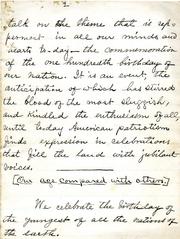 2
talk on the theme that is up-
permost in all our minds and
hearts to-day – the commemoration
of the one hundredth birthday of
our nation. It is an event, the
anticipation of which has stirred
the blood of the most sluggish,
and kindled the enthusiasm of all,
until today American patriotism
finds expression in celebrations
that fill the land with jubilant
voices.
[Our age compared with others.]
We celebrate the birthday of
the youngest of all the nations of
the earth.